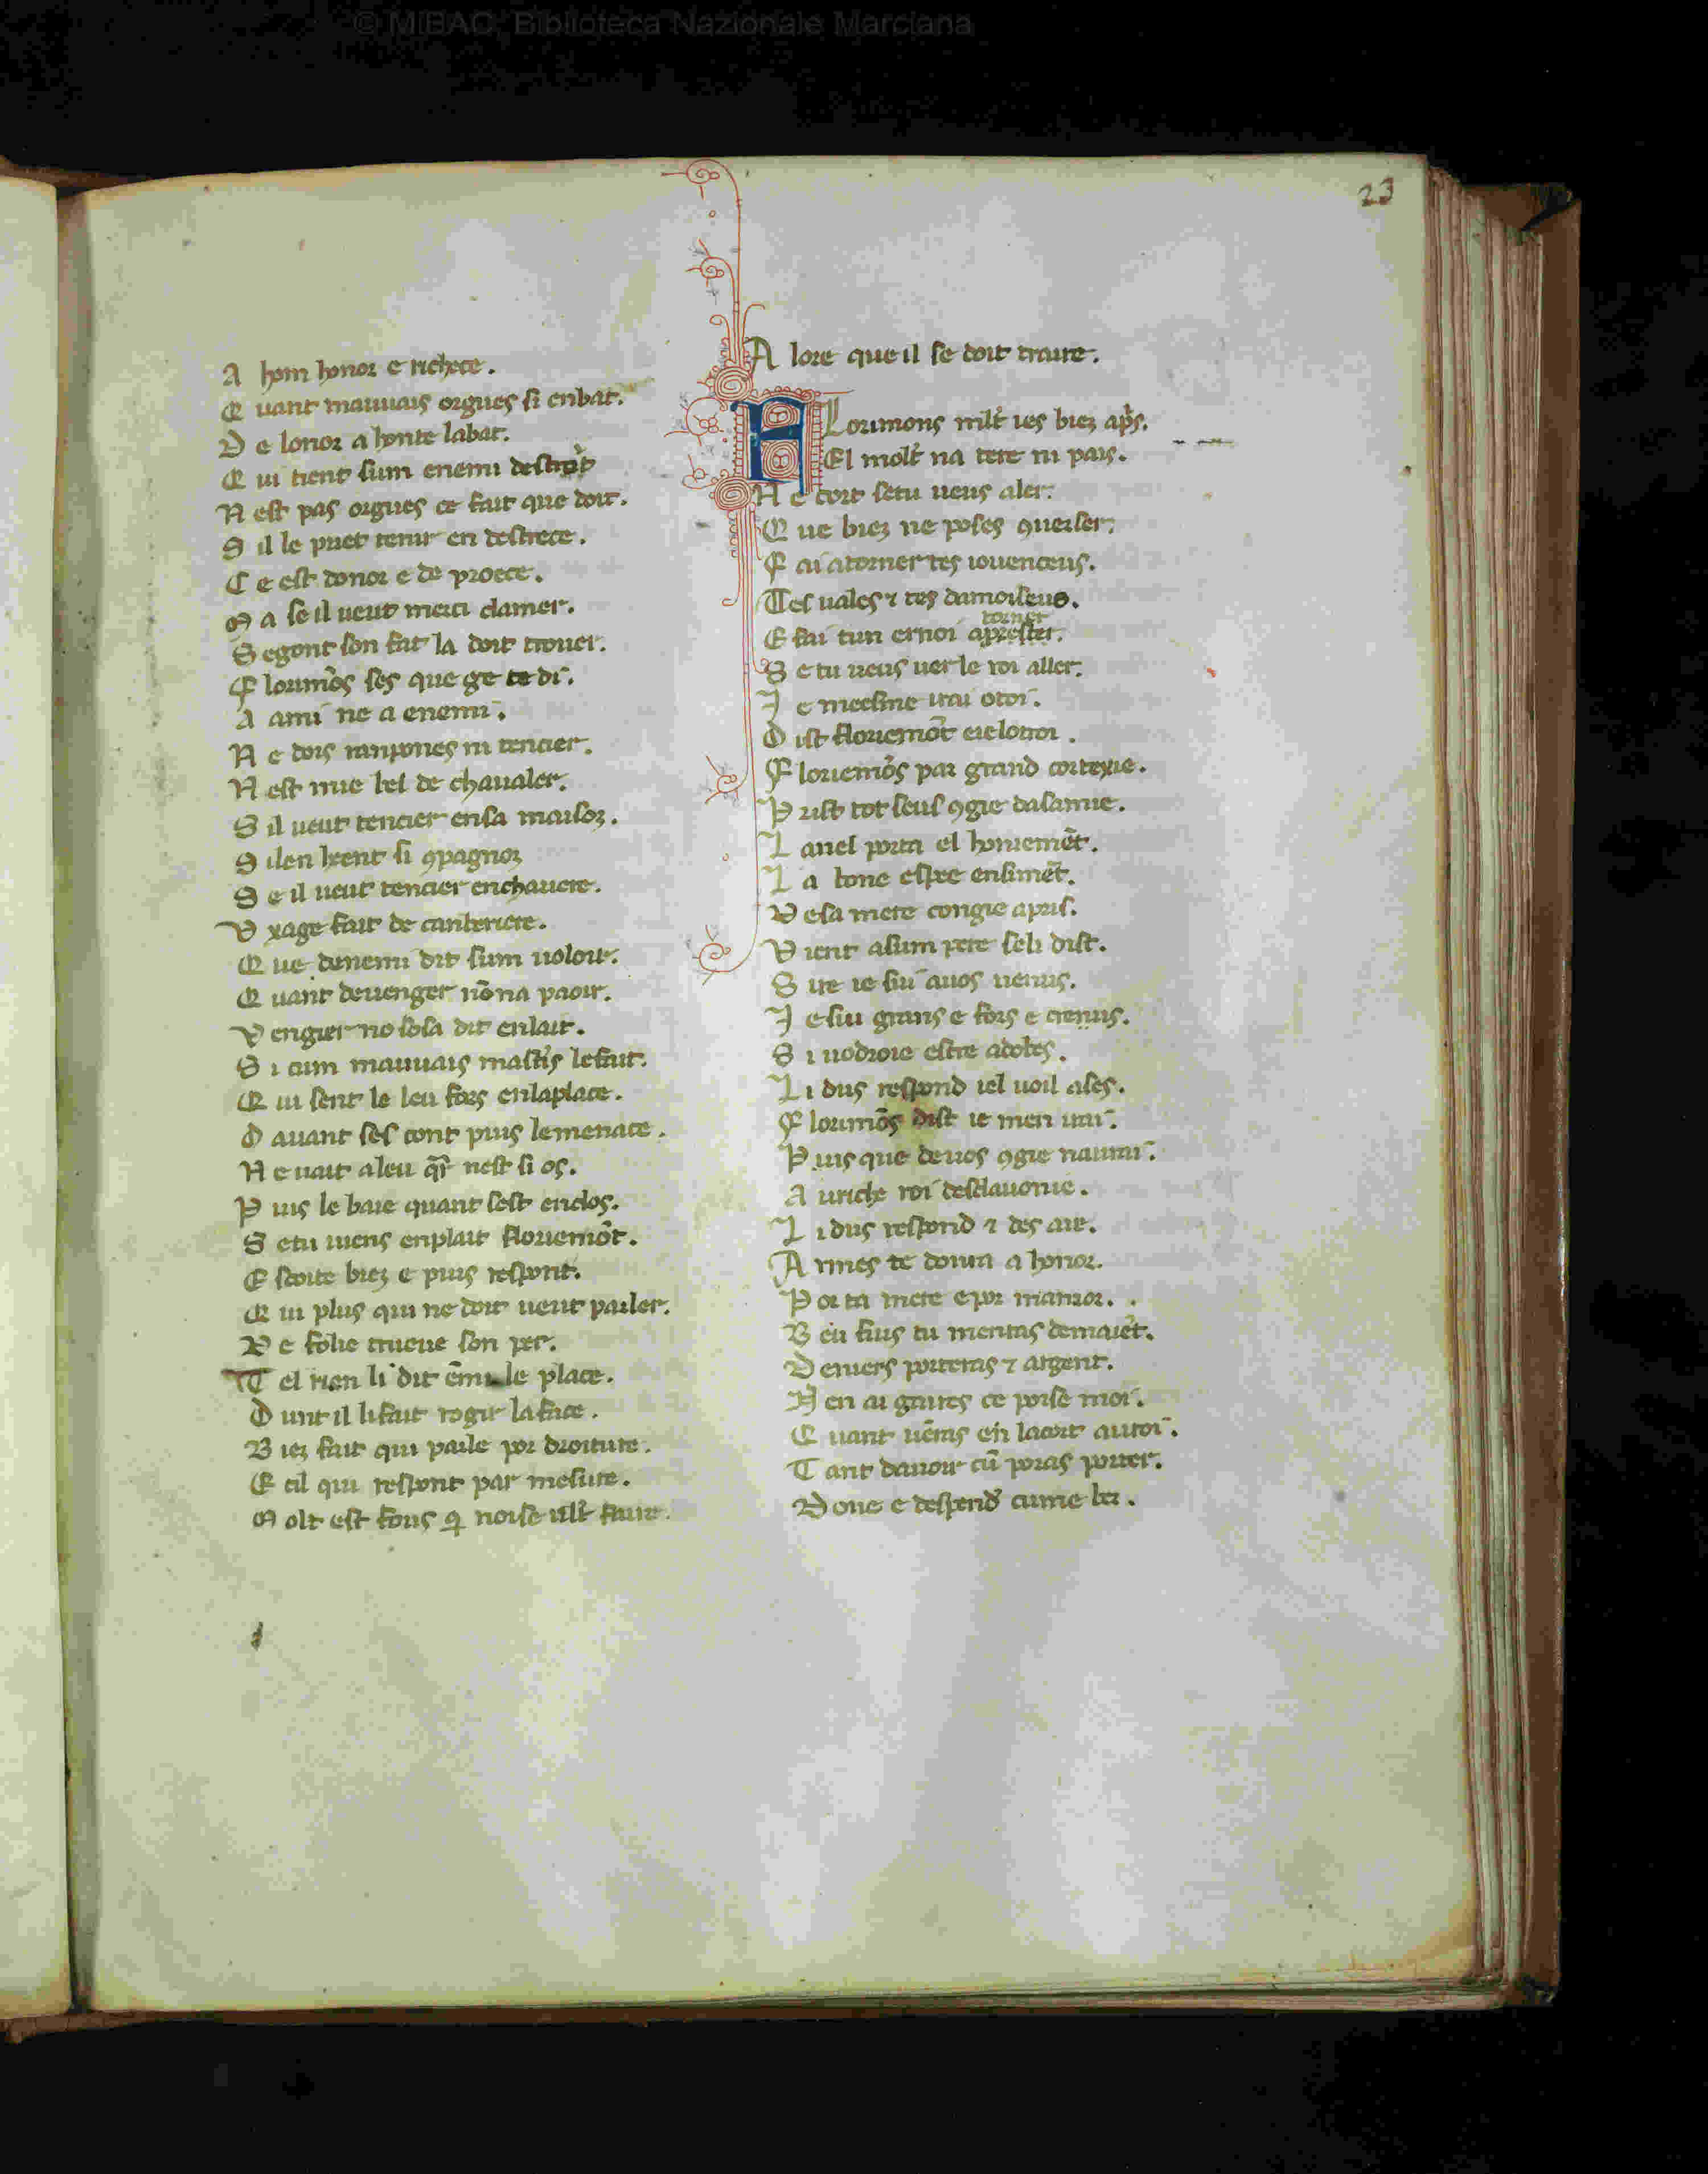 © MiBAC, Biblioteca Nazionale Marciana
23
A hom honor e richece.
Q uant mauuais orgues si enbat.
D e lonor a honte labat.
Q ui tient sum enemi destroit
N est pas orgues ce fait que doit.
S il le puet tenir en destrece.
C e est donor e de proece.
M a se il ueut merci clamer.
S egont son fat la doit trouer.
F lorimōs ses que ge te di.
A ami ne a enemi.
N e dois ranpones ni tencier.
N est mie bel de chaualer.
S il ueut tencier ensa maisoz.
S ilen hent si ꝯpagnoz
S e il ueut tencier enchauere.
V xage fait de canberiere.
Q ue denemi dit sum uoloir.
Q uant deuenger nō na paoir.
V engier no sosa dit enlait.
S i cum mauuais mastis lefait.
Q ui sent le leu fors enlaplace.
D auant ses cont puis lemenace.
N e uait aleu nest si os.
P uis le baie quant sest enclos.
S etu uiens enplait floriemōt.
E scoite biez e puis respont.
Q ui plus qui ne doit ueut parler.
D e folie trueue son per.
T el rien li dit le place.
D unt il lifait rogir laface.
B iez fait qui parle por droiture.
E cil qui respont par mesure.
M olt est fous noise faire.
A lore que il se doit traire.
F Lorimons mlt ies biez apͥs.
El molt na tere ni pais.
N e cort setu ueus aler.
Q ue biez ne poses ꝯuerser.
F ai atorner tes iouenceus.
Tes uales ⁊ tes damoiseus.
torner
E fai tun ernoi aprester.
S e tu ueus uer le roi aller.
J e meesme irai otoi.
D ist floriemōt
F loriemōs par grand cortexie.
P rist tot seus ꝯgie dasamie.
L anel porta el
L a bone espee ensimēt.
D esa mere congie apris.
V ient asum pere seli dist.
S ire ie sui auos uenus.
J e sui grans e fors e crenus.
S i uodroie estre adobes.
L i dus respond iel uoil ases.
F lorimōs dist ie men irai.
P uis que deuos ꝯgie naurai.
A uriche roi desclauonie.
L i dus respond ⁊ des aie.
A rmes te donra a honor.
P or ta mere epor
B eu fius tu menras
D eniers porteras ⁊ argent.
N en ai gaires ce poise moi.
Q uant uēras en lacort auroi.
T ant dauoir cū poras porter.
D one e despend cume ber.